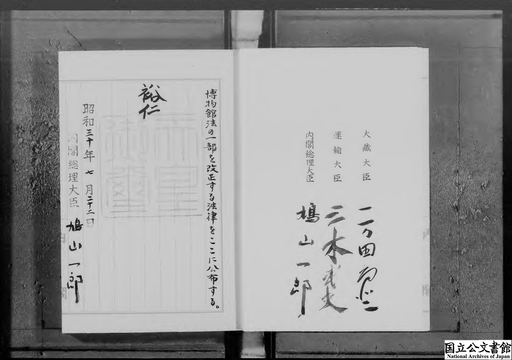 大蔵大臣
一万田尚登
運輸大臣
三木武夫
内閣総理大臣
鳩山一郎
博物館法の一部を改正する法律をここに公布する。
裕仁
昭和三十年七月二十二日
内閣総理大臣
鳩山一郎
国立公文書館
National Archives of Japan